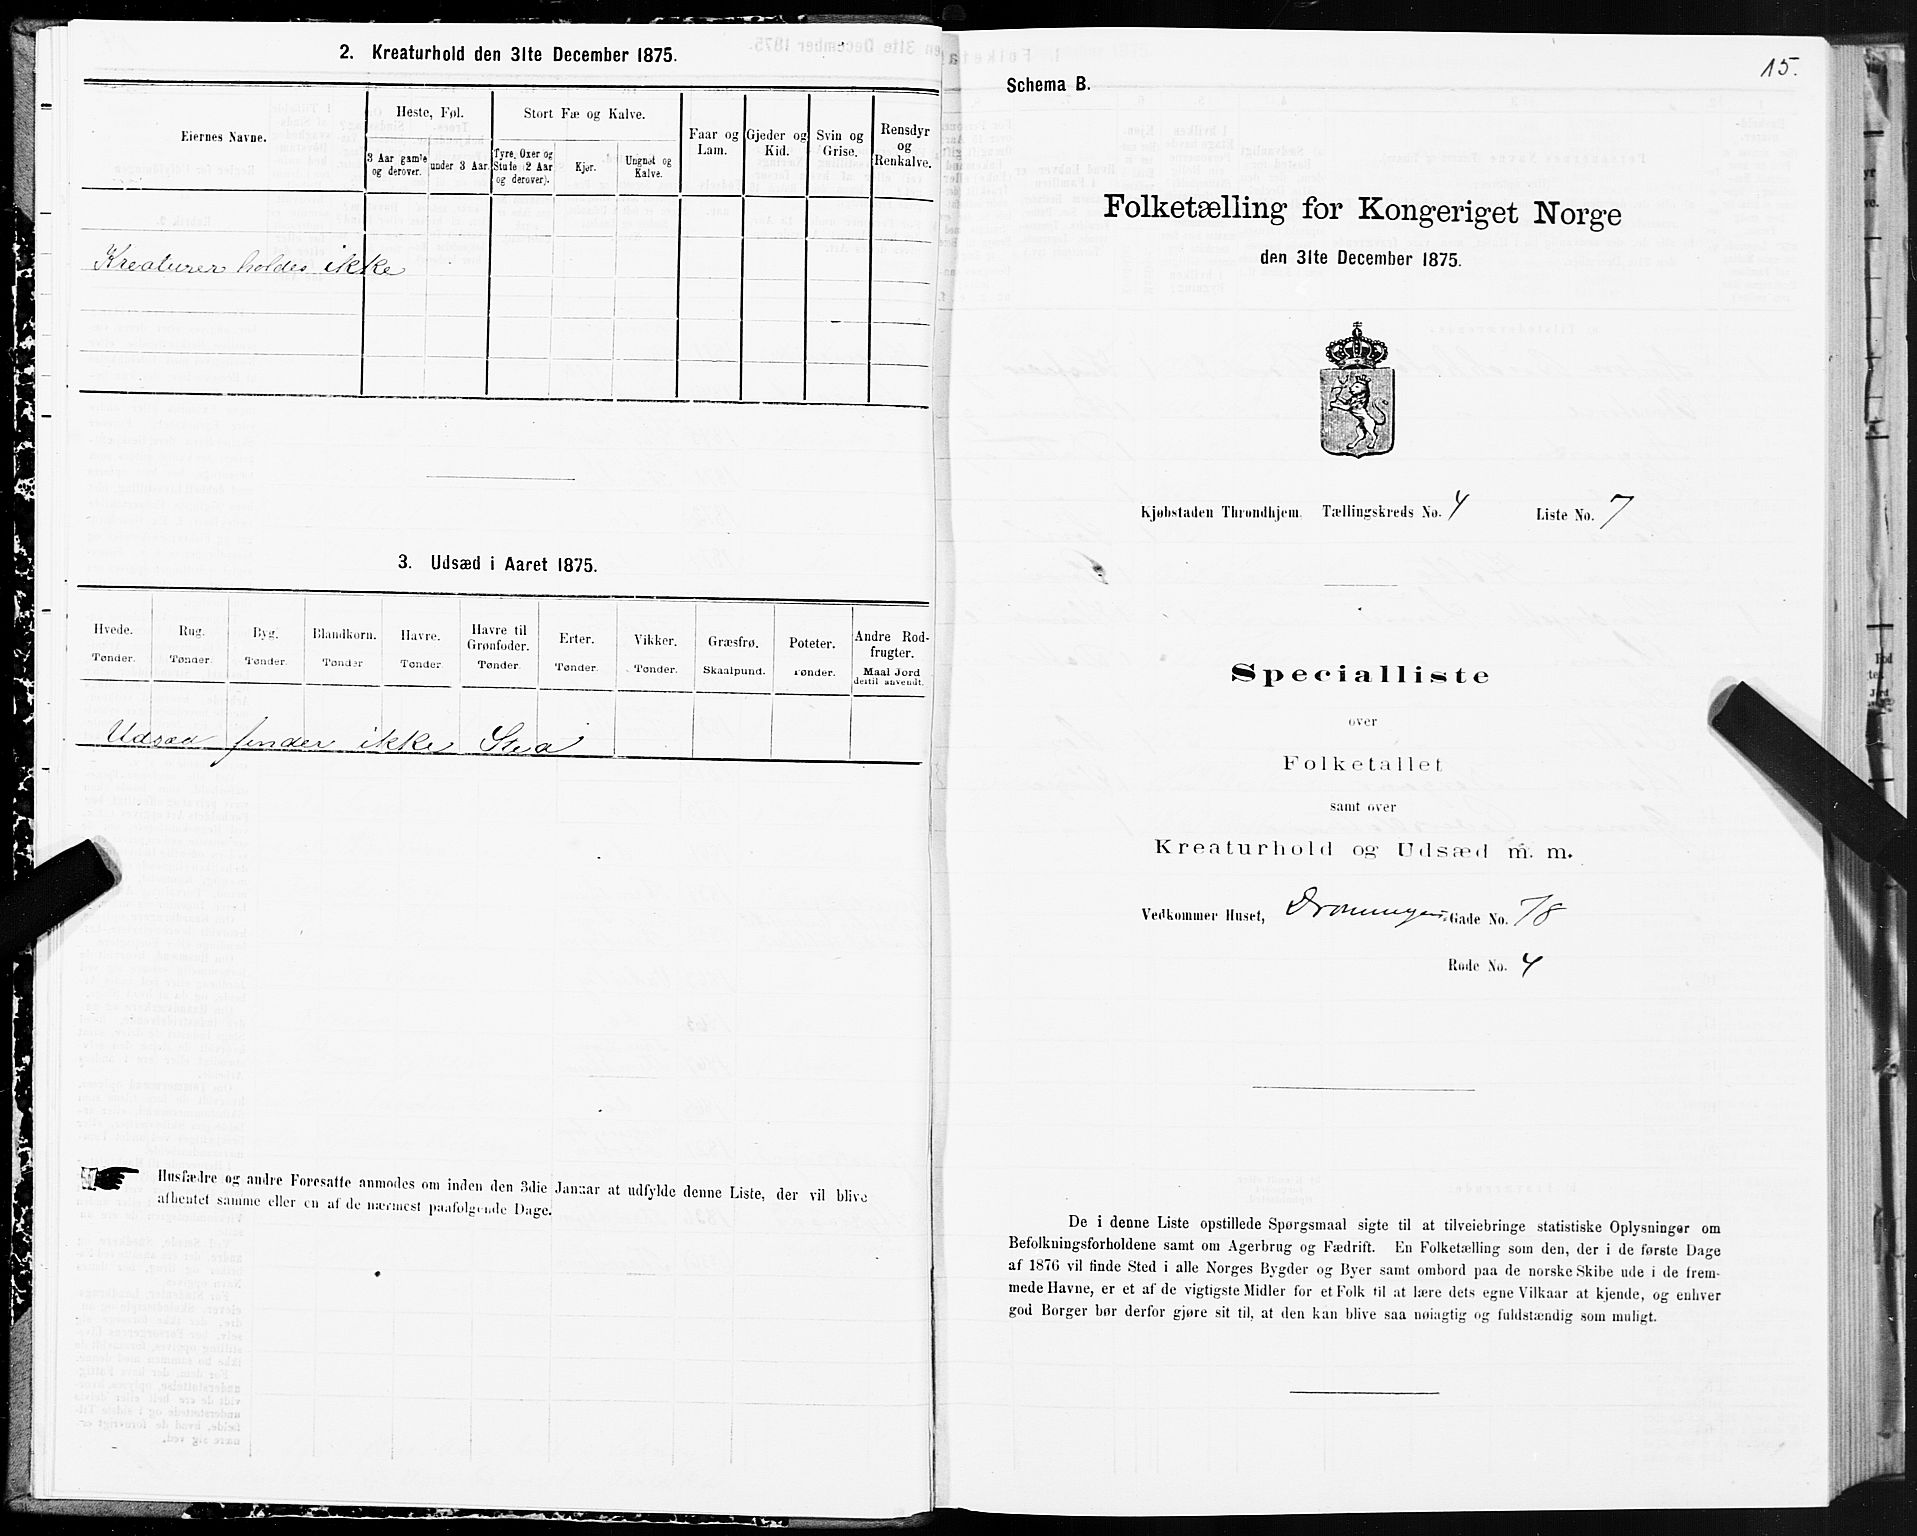 2. Kreaturhold den 31te December 1875.
Eiernes Navne.
Heste, Føl.
3 Aar gamle og derover.
under 3 Aar.
Stort Fæ og Kalve.
Tyre, Oxer og Stude (2 Aar og derover).
Kjør.
Ungnøt og Kalve.
Faar og Lam.
Gjeder og Kid.
Svin og Grise.
Rensdyr og Renkalve.
Kreaturer holdes ikke
3. Udsæd i Aaret 1875.
Hvede. Rug. Byg. Blandkorn. Havre. Havre til Grønfoder. Erter. Vikker. Græsfrø. Poteter. Andre Rodfrugter.
Tønder. Tønder. Tønder. Tønder Tønder. Tønder. Tønder. Tønder. Skaalpund. Tønder. Maal Jord dertil anvendt.
Udsæd finder ikke Sted
Husfædre og andre Foresatte anmodes om inden den 3die Januar at udfylde denne Liste, der vil blive
afhentet samme eller en af de nærmest paafølgende Dage.
15.
Schema B.
Folketælling for Kongeriget Norge
den 31te December 1875.
Kjøbstaden Throndhjem. Tællingskreds No. 4 Liste No. 7
Specialliste
over
Folketallet
samt over
Kreaturhold og Udsæd m. m.
Vedkommer Huset, Dronningens Gade No. 78
Rode No. 4
De i denne Liste opstillede Spørgsmaal sigte til at tilveiebringe statistiske Oplysninger om
Befolkningsforholdene samt om Agerbrug og Fædrift. En Folketælling som den, der i de første Dage
af 1876 vil finde Sted i alle Norges Bygder og Byer samt ombord paa de norske Skibe ude i de frem-
mede Havne, er et af de vigtigste Midler for et Folk til at lære dets egne Vilkaar at kjende, og enhver
god Borger bør derfor gjøre sit til, at den kan blive saa nøiagtig og fuldstændig som muligt.